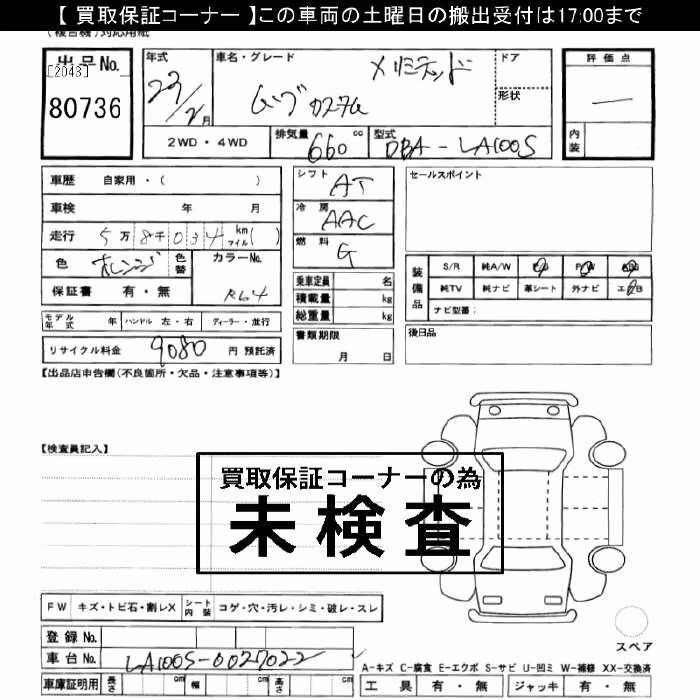 【 買取保証コーナー 】この車両の土曜日の搬出受付は17:00まで
(複合機)対応用紙
出品No.
[2043]
80736
年式
23/2月
車名・グレード
ムーブカスタム
メモリミテッド
ドア
形状
2WD・4WD
排気量 660 cc
型式 DBA-LA100S
評価点
—
内装
車歴 自家用・( )
車検 年 月
走行 5万8千034 km マイル( )
色 オレンジ 色替
カラーNo. R64
保証書 有・無
モデル年式 年 ハンドル 左・右 ディーラー・並行
リサイクル料金 9080 円 預託済
シフト AT
冷房 AAC
燃料 G
乗車定員 名
積載量 kg
総重量 kg
書類期限
月 日
セールスポイント
装備品
S/R 純A/W
純TV 純ナビ 革シート 外ナビ
ナビ型番:
後日品
【出品店申告欄(不良箇所・欠品・注意事項等)】
【検査員記入】
買取保証コーナーの為
未検査
FW キズ・トビ石・割レX シート内装 コゲ・穴・汚レ・シミ・破レ・スレ
登録No.
車台No. LA100S-0027022
車庫証明用 長さ cm 幅 cm 高さ cm
スペア
A-キズ C-腐食 E-エクボ S-サビ U-凹ミ W-補修 XX-交換済
工具 有・無 ジャッキ 有・無